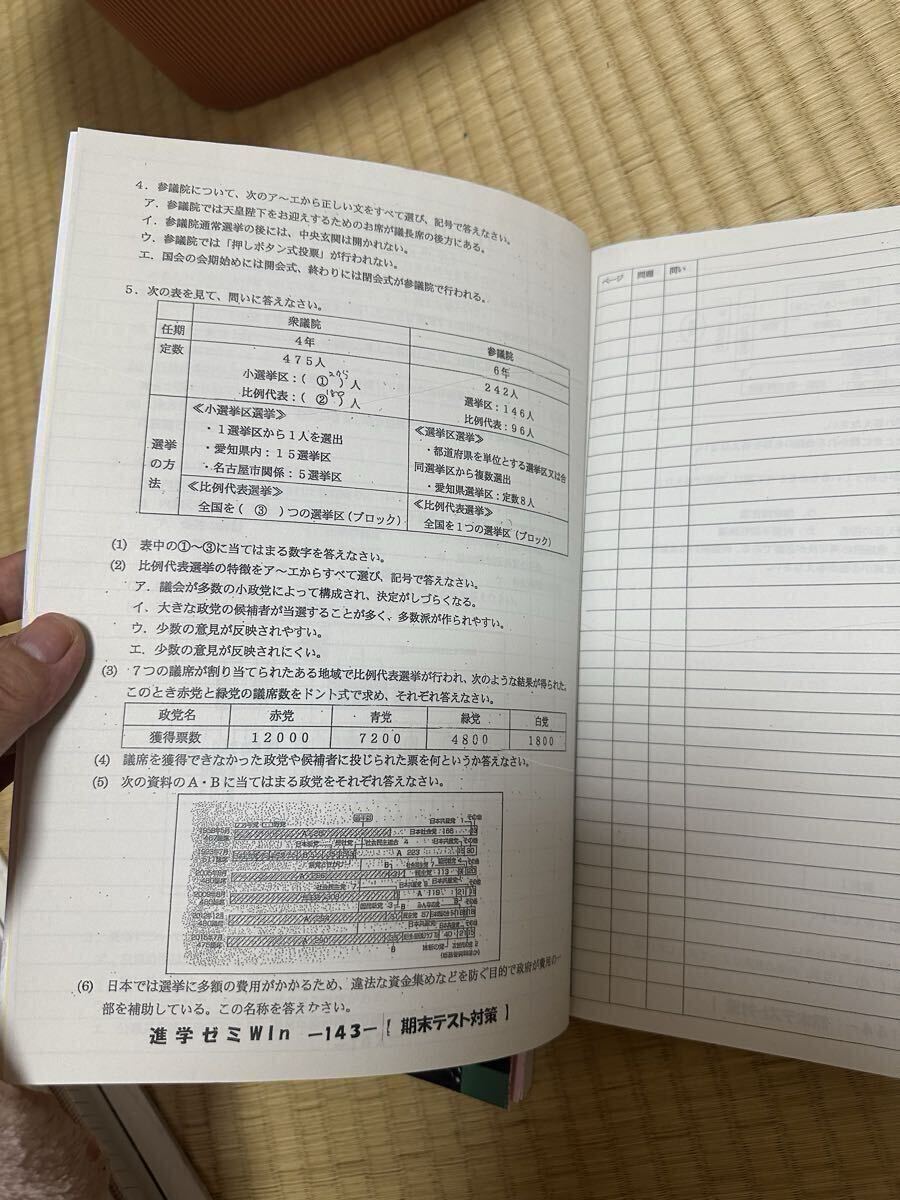 4．参議院について、次のア～エから正しい文をすべて選び、記号で答えなさい。
ア．参議院では天皇陛下をお迎えするためのお席が議長席の後方にある。
イ．参議院通常選挙の後には、中央玄関は開かれない。
ウ．参議院では「押しボタン式投票」が行われない。
エ．国会の会期始めには開会式、終わりには閉会式が参議院で行われる。
5．次の表を見て、問いに答えなさい。
衆議院 参議院
任期 4年 6年
定数 475人 242人
小選挙区：( ① 295 )人 選挙区：146人
比例代表：( ② 180 )人 比例代表：96人
選挙の方法
≪小選挙区選挙≫
・1選挙区から1人を選出
・愛知県内：15選挙区
・名古屋市関係：5選挙区
≪選挙区選挙≫
・都道府県を単位とする選挙区又は合
同選挙区から複数選出
・愛知県選挙区：定数8人
≪比例代表選挙≫
全国を( ③ )つの選挙区(ブロック)
≪比例代表選挙≫
全国を1つの選挙区(ブロック)
(1) 表中の①～③に当てはまる数字を答えなさい。
(2) 比例代表選挙の特徴をア～エからすべて選び、記号で答えなさい。
ア．議会が多数の小政党によって構成され、決定がしづらくなる。
イ．大きな政党の候補者が当選することが多く、多数派が作られやすい。
ウ．少数の意見が反映されやすい。
エ．少数の意見が反映されにくい。
(3) 7つの議席が割り当てられたある地域で比例代表選挙が行われ、次のような結果が得られた。
このとき赤党と緑党の議席数をドント式で求め、それぞれ答えなさい。
政党名 赤党 青党 緑党 白党
獲得票数 12000 7200 4800 1800
(4) 議席を獲得できなかった政党や候補者に投じられた票を何というか答えなさい。
(5) 次の資料のA・Bに当てはまる政党をそれぞれ答えなさい。
日本共産党 1 その他
日本社会党 166
社会民主連合 4 日本共産党 その他
A 223
(6) 日本では選挙に多額の費用がかかるため、違法な資金集めなどを防ぐ目的で政府が費用の一
部を補助している。この名称を答えなさい。
進学ゼミWIn －143－【 期末テスト対策 】
ページ 問題 問い